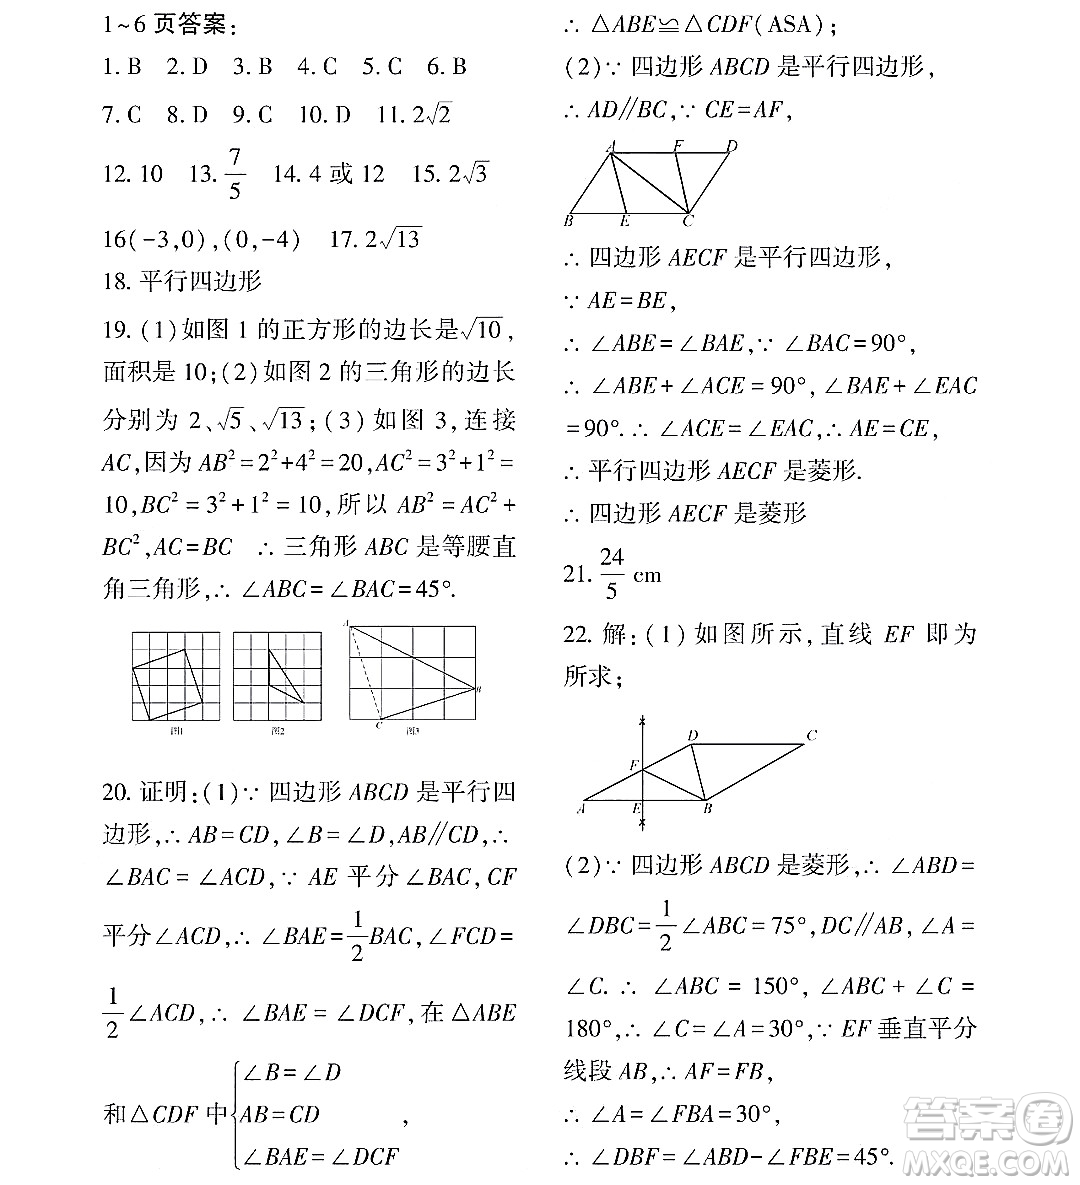 1~6页答案:
1. B 2. D 3. B 4. C 5. C 6. B
7. C 8. D 9. C 10. D 11. 2√2
12. 10 13. 7/5 14. 4 或 12 15. 2√3
16(-3,0),(0,-4) 17. 2√13
18. 平行四边形
19. (1)如图 1 的正方形的边长是√10,
面积是 10;(2)如图 2 的三角形的边长
分别为 2、√5、√13;(3)如图 3,连接
AC,因为 AB²=2²+4²=20,AC²=3²+1²=
10,BC²=3²+1²=10,所以 AB²=AC²+
BC²,AC=BC ∴ 三角形 ABC 是等腰直
角三角形,∴ ∠ABC=∠BAC=45°.
A
B
C
图1 图2 图3
20. 证明:(1)∵ 四边形 ABCD 是平行四
边形,∴ AB=CD,∠B=∠D,AB∥CD,∴
∠BAC=∠ACD,∵ AE 平分∠BAC,CF
平分∠ACD,∴ ∠BAE=1/2BAC,∠FCD=
1/2∠ACD,∴ ∠BAE=∠DCF,在△ABE
和△CDF 中{∠B=∠D
AB=CD ,
∠BAE=∠DCF
∴ △ABE≌△CDF(ASA);
(2)∵ 四边形 ABCD 是平行四边形,
∴ AD∥BC,∵ CE=AF,
A F D
B E C
∴ 四边形 AECF 是平行四边形,
∵ AE=BE,
∴ ∠ABE=∠BAE,∵ ∠BAC=90°,
∴ ∠ABE+∠ACE=90°,∠BAE+∠EAC
=90°.∴ ∠ACE=∠EAC,∴ AE=CE,
∴ 平行四边形 AECF 是菱形.
∴ 四边形 AECF 是菱形
21. 24/5 cm
22. 解:(1)如图所示,直线 EF 即为
所求;
D C
F
A E B
(2)∵ 四边形 ABCD 是菱形,∴ ∠ABD=
∠DBC=1/2∠ABC=75°,DC∥AB,∠A=
∠C. ∴ ∠ABC=150°,∠ABC+∠C=
180°,∴ ∠C=∠A=30°,∵ EF 垂直平分
线段 AB,∴ AF=FB,
∴ ∠A=∠FBA=30°,
∴ ∠DBF=∠ABD-∠FBE=45°.
答案圈
MXQE.COM